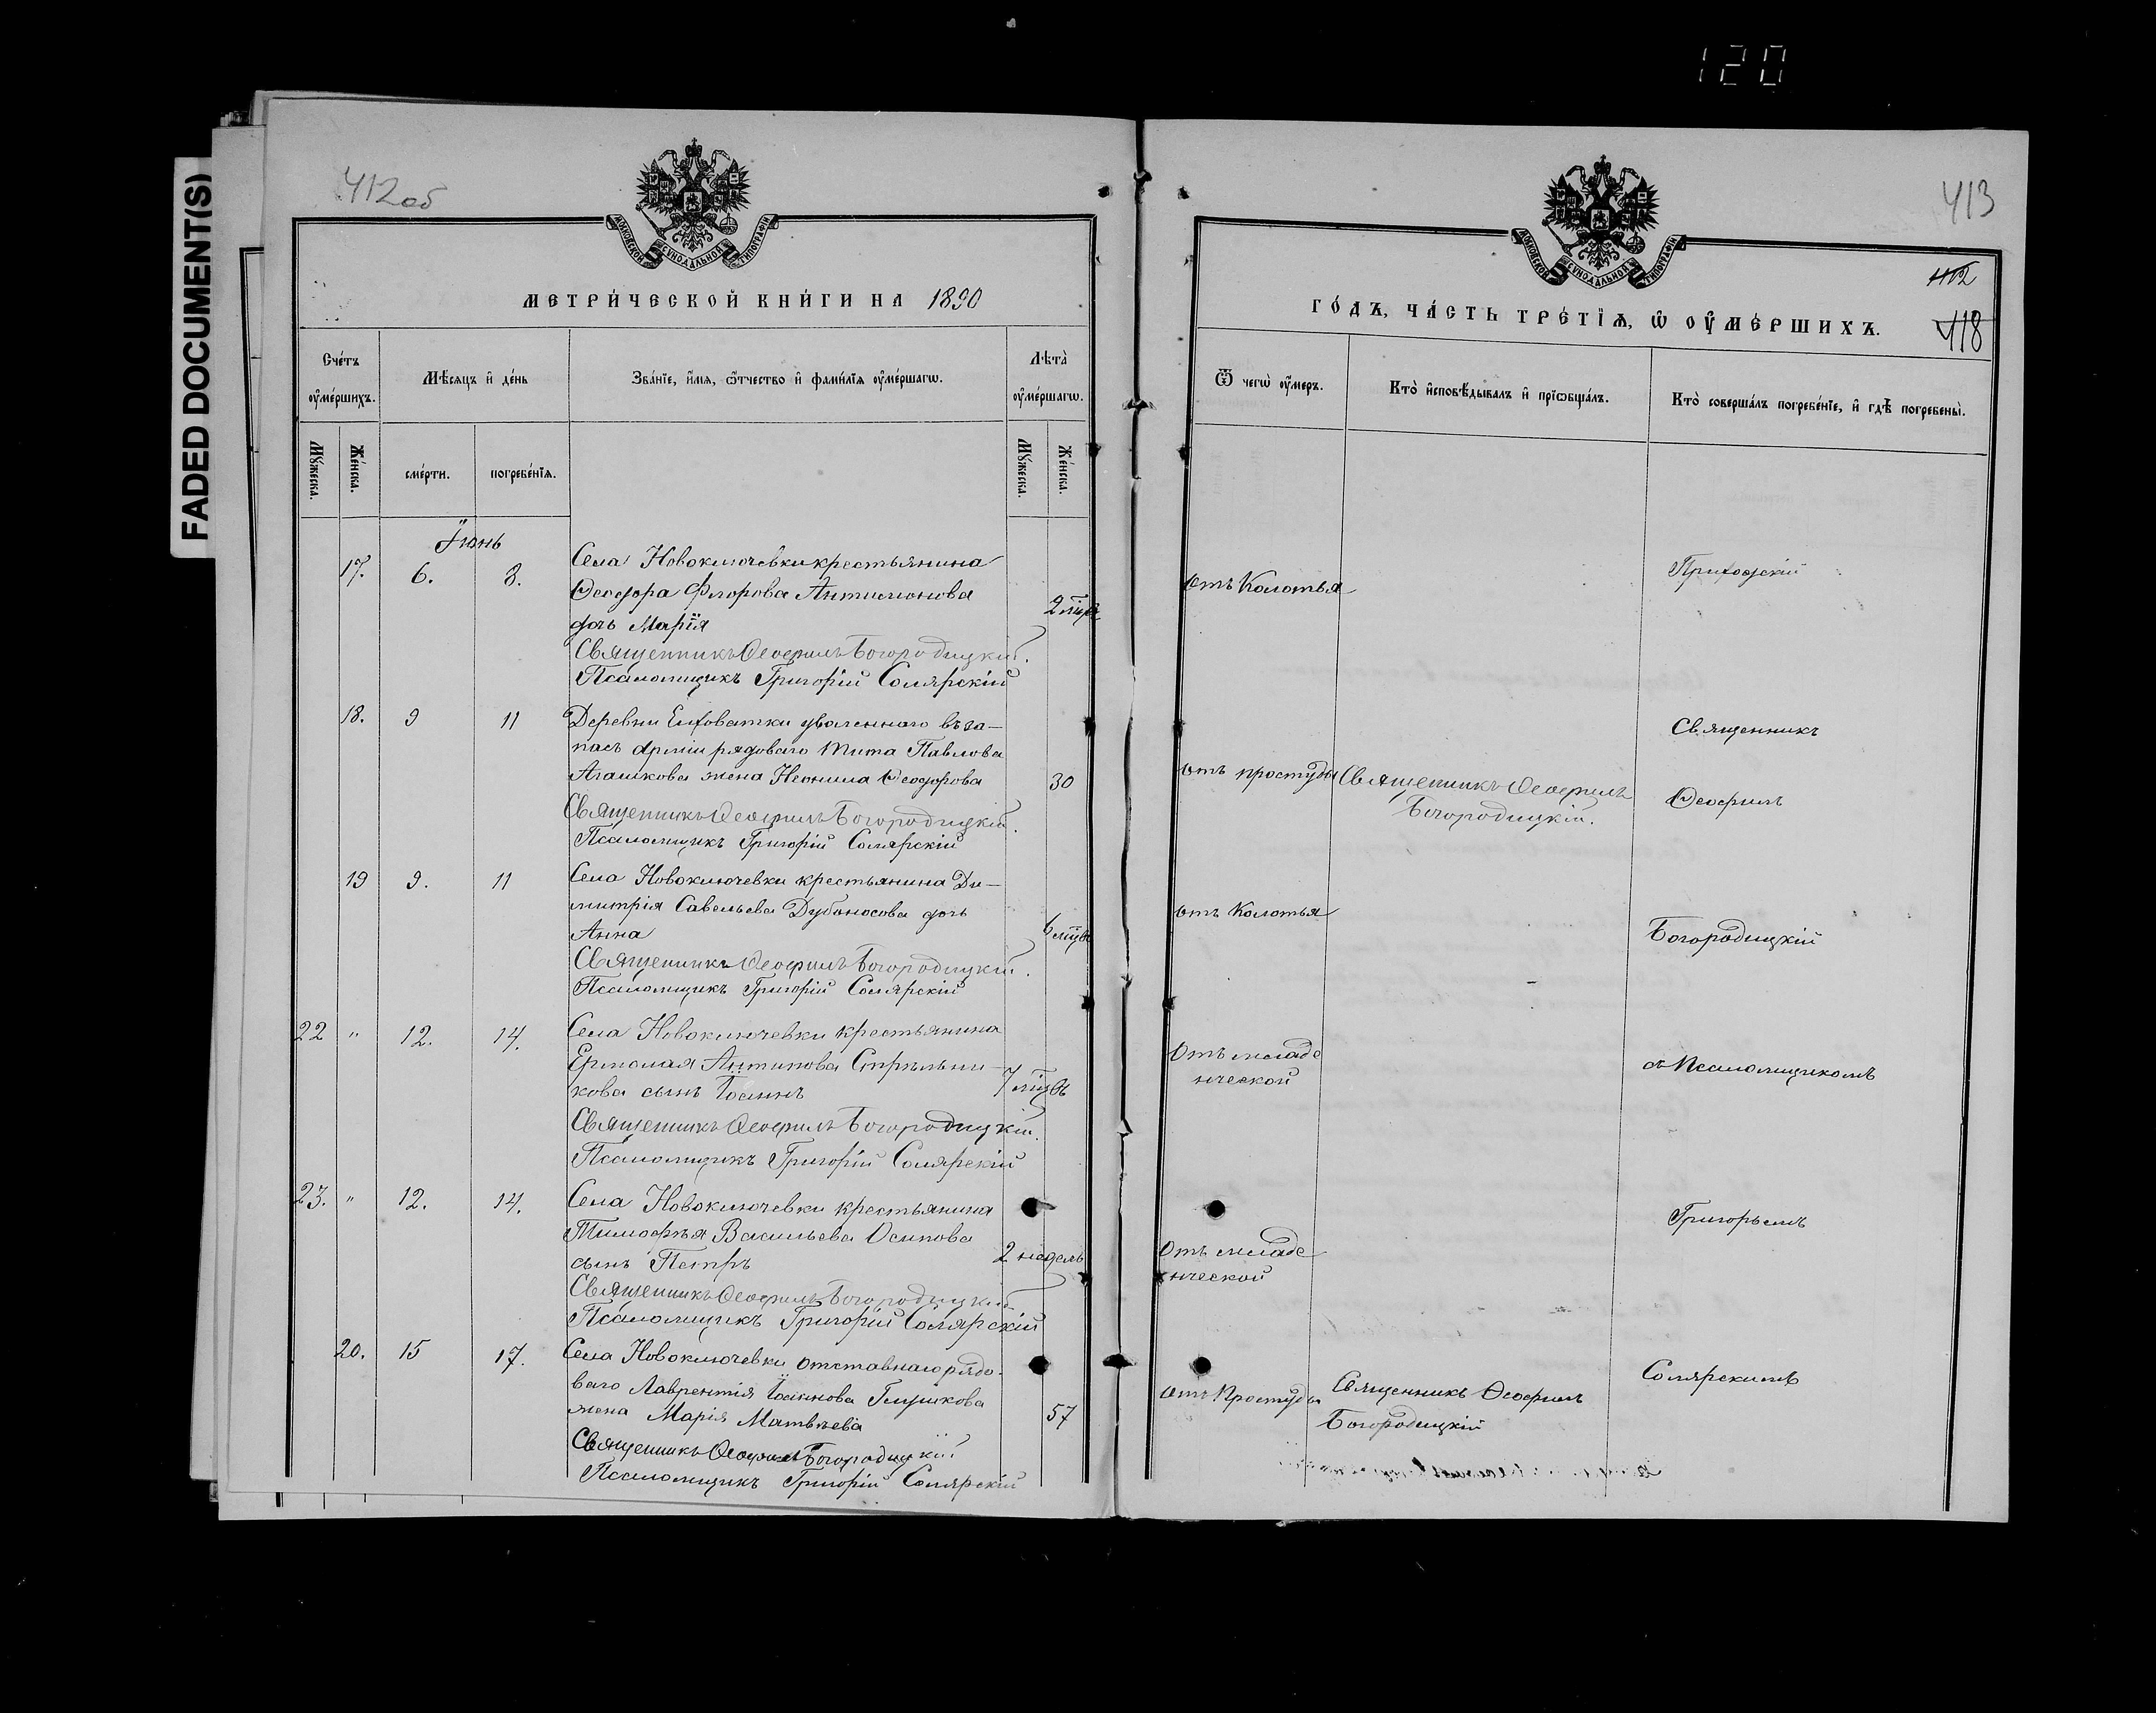 120
FADED DOCUMENT(S)
412об
МОСКОВСКОЙ СѴНОДАЛЬНОЙ ТИПОГРАФІИ
МЕТРИ́ЧЕСКОЙ КНИ́ГИ НА 1890
Сче́тъ ᲂу҆ме́ршихъ.
Мѣ́сяцъ и҆ де́нь
Зва́нїе, и҆́мя, ѻ҆́тчество и҆ фами́лїя ᲂу҆ме́ршагѡ.
Лѣта̀ ᲂу҆ме́ршагѡ.
Мꙋ́жеска.
Же́нска.
сме́рти.
погребе́нїя.
Мꙋ́жеска.
Же́нска.
Іюнь
17. 6. 8. Села Новоключевки крестьянина
Ѳеодора Флорова Антимонова
дочь Марія
Священникъ Ѳеофилъ Богородицкій.
Псаломщикъ Григорій Солярскій
18. 9 11 Деревни Елховатки уволеннаго въ за-
пасъ арміи рядоваго Тита Павлова
Агашкова жена Неонила Ѳеодорова 30
Священникъ Ѳеофилъ Богородицкій.
Псаломщикъ Григорій Солярскій
19 9. 11 Села Новоключевки крестьянина Ди-
митрія Савельева Дубоносова дочь
Анна 6 мцвъ
Священникъ Ѳеофилъ Богородицкій.
Псаломщикъ Григорій Солярскій
22 " 12. 14. Села Новоключевки крестьянина
Ермолая Антипова Стрѣльни-
кова сынъ Іоаннъ 7 мцвъ
Священникъ Ѳеофилъ Богородицкій.
Псаломщикъ Григорій Солярскій
23. " 12. 14. Села Новоключевки крестьянина
Тимофѣя Васильева Осипова
сынъ Петръ 2 недель
Священникъ Ѳеофилъ Богородицкій
Псаломщикъ Григорій Солярскій
20. 15 17. Села Новоключевки отставнаго рядо-
ваго Лаврентія Іоаннова Глушкова
жена Марія Матвѣева 57
Священникъ Ѳеофилъ Богородицкій
Псаломщикъ Григорій Солярскій
413
МОСКОВСКОЙ СѴНОДАЛЬНОЙ ТИПОГРАФІИ
418
ГО́ДЪ, ЧА́СТЬ ТРЕ́ТЇЯ, Ѡ҆ ОУ҆МЕ́РШИХЪ.
Ѿ чегѡ̀ ᲂу҆́меръ.
Кто̀ и҆сповѣ́дывалъ и҆ прїѡбща́лъ.
Кто̀ соверша́лъ погребе́нїе, и҆ гдѣ̀ погребены̀.
отъ Колотья
Приходскій
Священникъ
отъ простуды Священникъ Ѳеофилъ
Богородицкій.
Ѳеофилъ
отъ Колотья
Богородицкій
Отъ младе
нческой
съ Псаломщикомъ
Григорьемъ
Отъ младе
нческой
Солярскимъ
отъ Простуды Священникъ Ѳеофилъ
Богородицкій